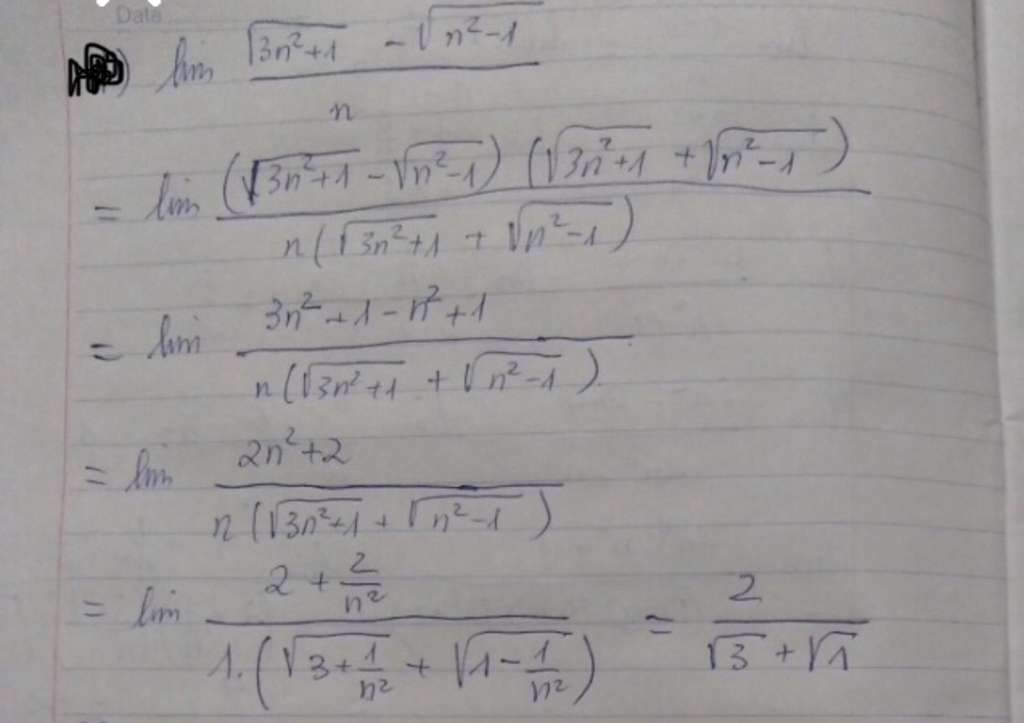 Data
) lim (√(3n²+1) - √(n²-1)) / n
= lim ((√(3n²+1) - √(n²-1)) (√(3n²+1) + √(n²-1))) / (n(√(3n²+1) + √(n²-1)))
= lim (3n²+1-n²+1) / (n(√(3n²+1) + √(n²-1)))
= lim (2n²+2) / (n(√(3n²+1) + √(n²-1)))
= lim (2 + 2/n²) / (1.(√(3+1/n²) + √(1-1/n²))) = 2 / (√3 + √1)